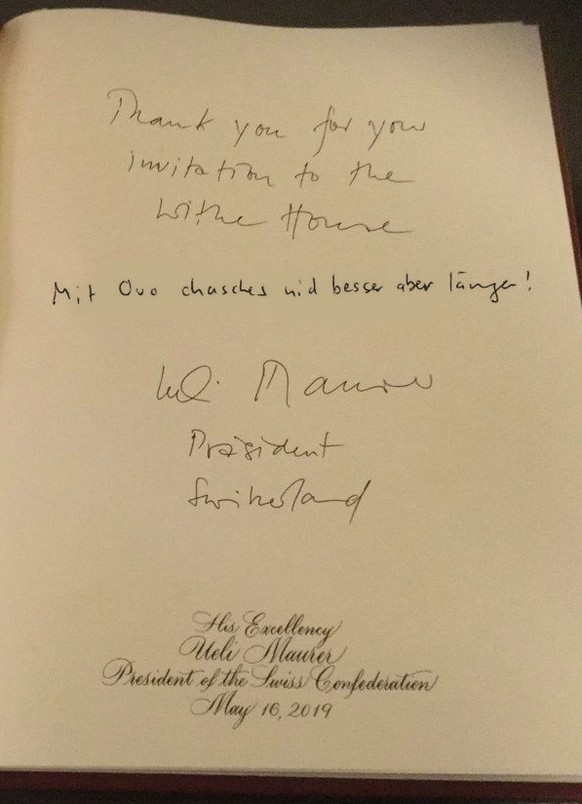 Thank you for your
invitation to the
Withe House
Mit Ovo chasches nid besser aber länger!
Ueli Maurer
Präsident
Switzerland
His Excellency
Ueli Maurer
President of the Swiss Confederation
May 16, 2019